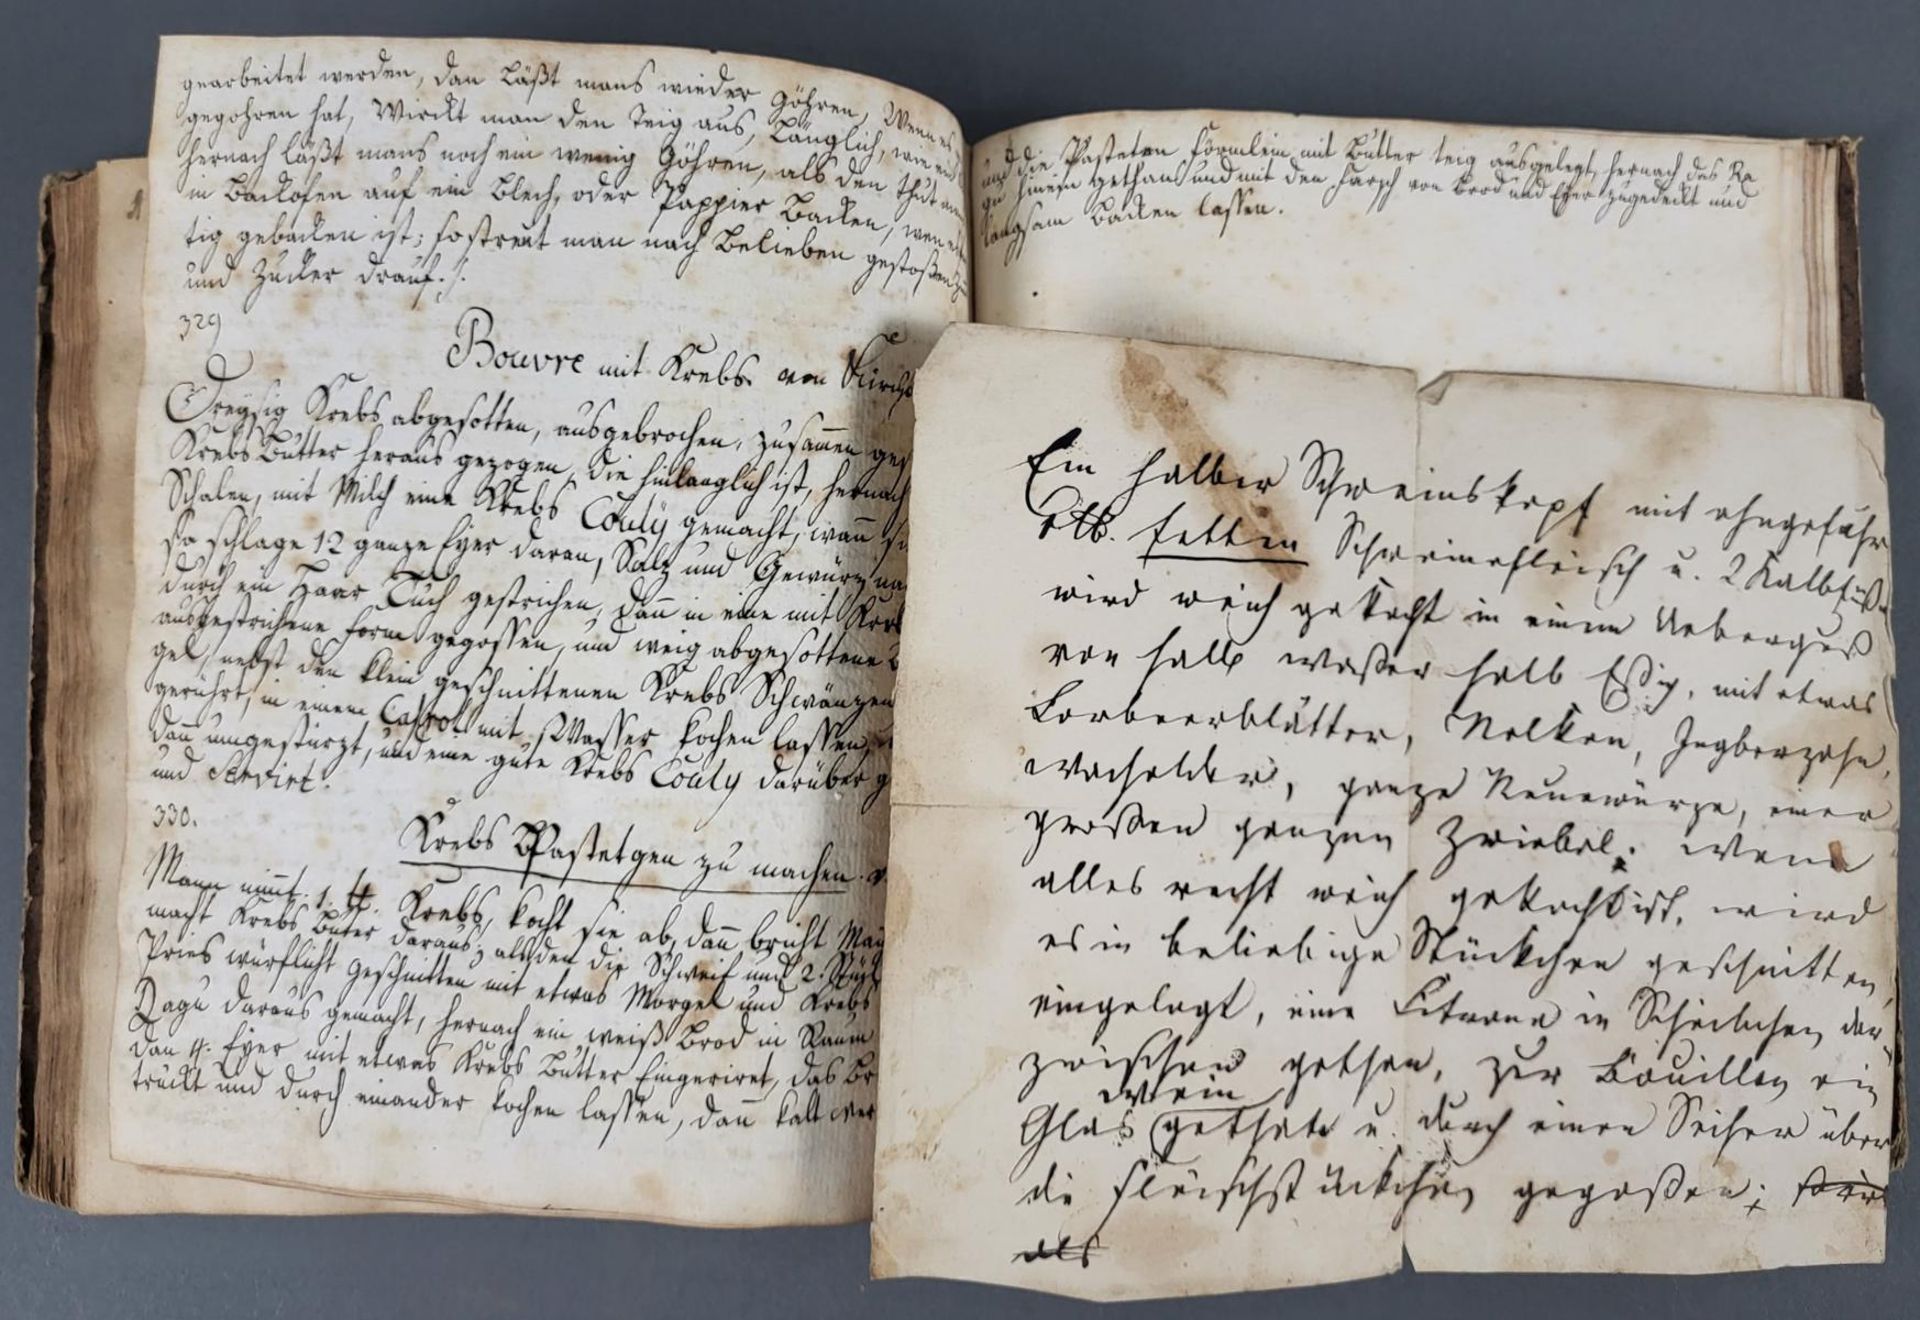 gearbeitet werden, dan läßt mans wieder göhren, Wenn es
gegohren hat, Wirckt man den Teig aus, länglich, wie ein
hernach läßt mans noch ein wenig göhren, als den thut man
in Backofen auf ein Blech, oder Pappier Backen, wen es
tig gebacken ist; so streut man nach Belieben gestoßen
und Zucker drauf.
329
Bouvre mit Krebs
Dreysig Krebs abgesotten, ausgebrochen, zusamen ges
Krebs Butter heraus gezogen, die hinlänglich ist, hernach
Schalen, mit Milch eine Krebs Couly gemacht, wann
so schlage 12 ganze Eyer daran, Salz und Gewürz
durch ein Haar Tuch gestrichen, dann in eine mit Kreb
ausgestrichene Form gegossen, und abgesottene
gel, nebst den klein geschnittenen Krebs Schwänzen
gerührt, in einem Casrol mit Wasser kochen lassen,
dann umgestürzt, und eine gute Krebs Couly darüber g
und Servirt.
330.
Krebs Pastetgen zu machen.
Mann nimt 1. ℔. Krebs, kocht sie ab, dann bricht Man
macht Krebs Buter daraus; alsden die Schweif und 2. Stück
Pries würflicht geschnitten mit etwas Morgel und Krebs
Ragu daraus gemacht, hernach ein weiß Brod in Raum
dan 4. Eyer mit etwas Krebs Butter Eingeriret, das Br
trückt und durch einander kochen lassen, dann kalt wer
und die Pasteten Förmlein mit Butter teig ausgelegt, hernach das Ra
gu hinein gethan und mit den Farsch von Brod und Eyer zugedeckt und
langsam Backen lassen.
Ein halber Schweinskopf mit ohngefähr
fetten Schweinefleisch u. 2 Kalbsfüße
wird weich gekocht in einem Ueberguß
von halb waßer halb Eßig, mit etwas
Lorbeerblätter, Nelken, Ingberzehe,
wacholder, ganze Neuewürze, einer
großen ganzen Zwiebel. Wenn
alles recht weich gekocht ist, wird
es in beliebige Stückchen geschnitten,
eingelegt, eine Citrone in Scheibchen dar
zwischen gethan, zur Bouillon ein
Wein
Glas gethan u. durch einen Seiher über
die Fleischstückchen gegoßen;
als